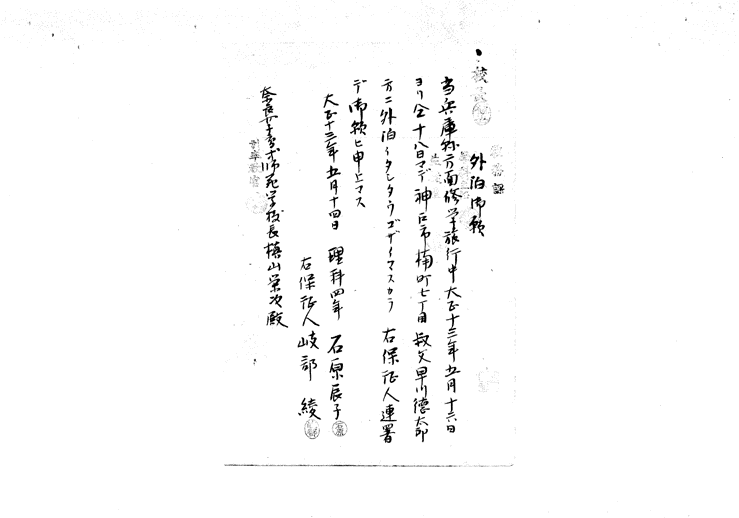 校長
外泊御願
当兵庫縣方面修学旅行中大正十三年五月十六日
ヨリ仝十八日マデ神戸市楠町七丁目叔父早川德太郎
方ニ外泊イタシタウゴザイマスカラ右保証人連署
デ御願ヒ申上マス
大正十三年五月十四日 理科四年 石原辰子
右保証人 岐部綾
奈良女子高等師範学校長槙山栄次殿